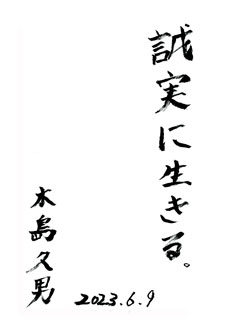 誠実に生きる。
木島久男
2023.6.9